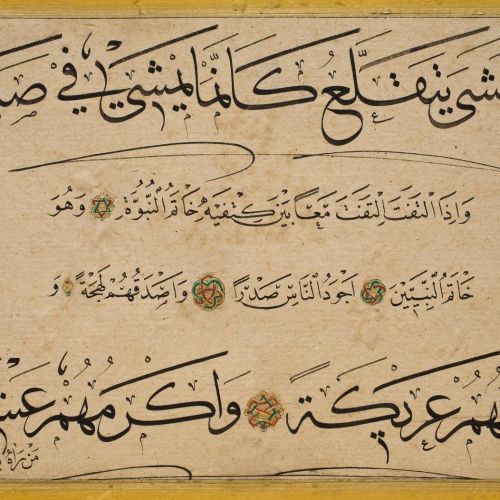 مشى يتقلع كانما يمشي في صب
وَاِذَا الْتَفَتَ اِلْتَفَتَ مَعًا بَيْنَ كَتِفَيْهِ خَاتَمُ النُّبُوَّةِ وَهُوَ
خَاتَمُ النَّبِيِّينَ اَجْوَدُ النَّاسِ صَدْرًا وَاَصْدَقُهُمْ لَهْجَةً وَ
هم عريكة واكرمهم عش
مَنْ رَاٰهُ